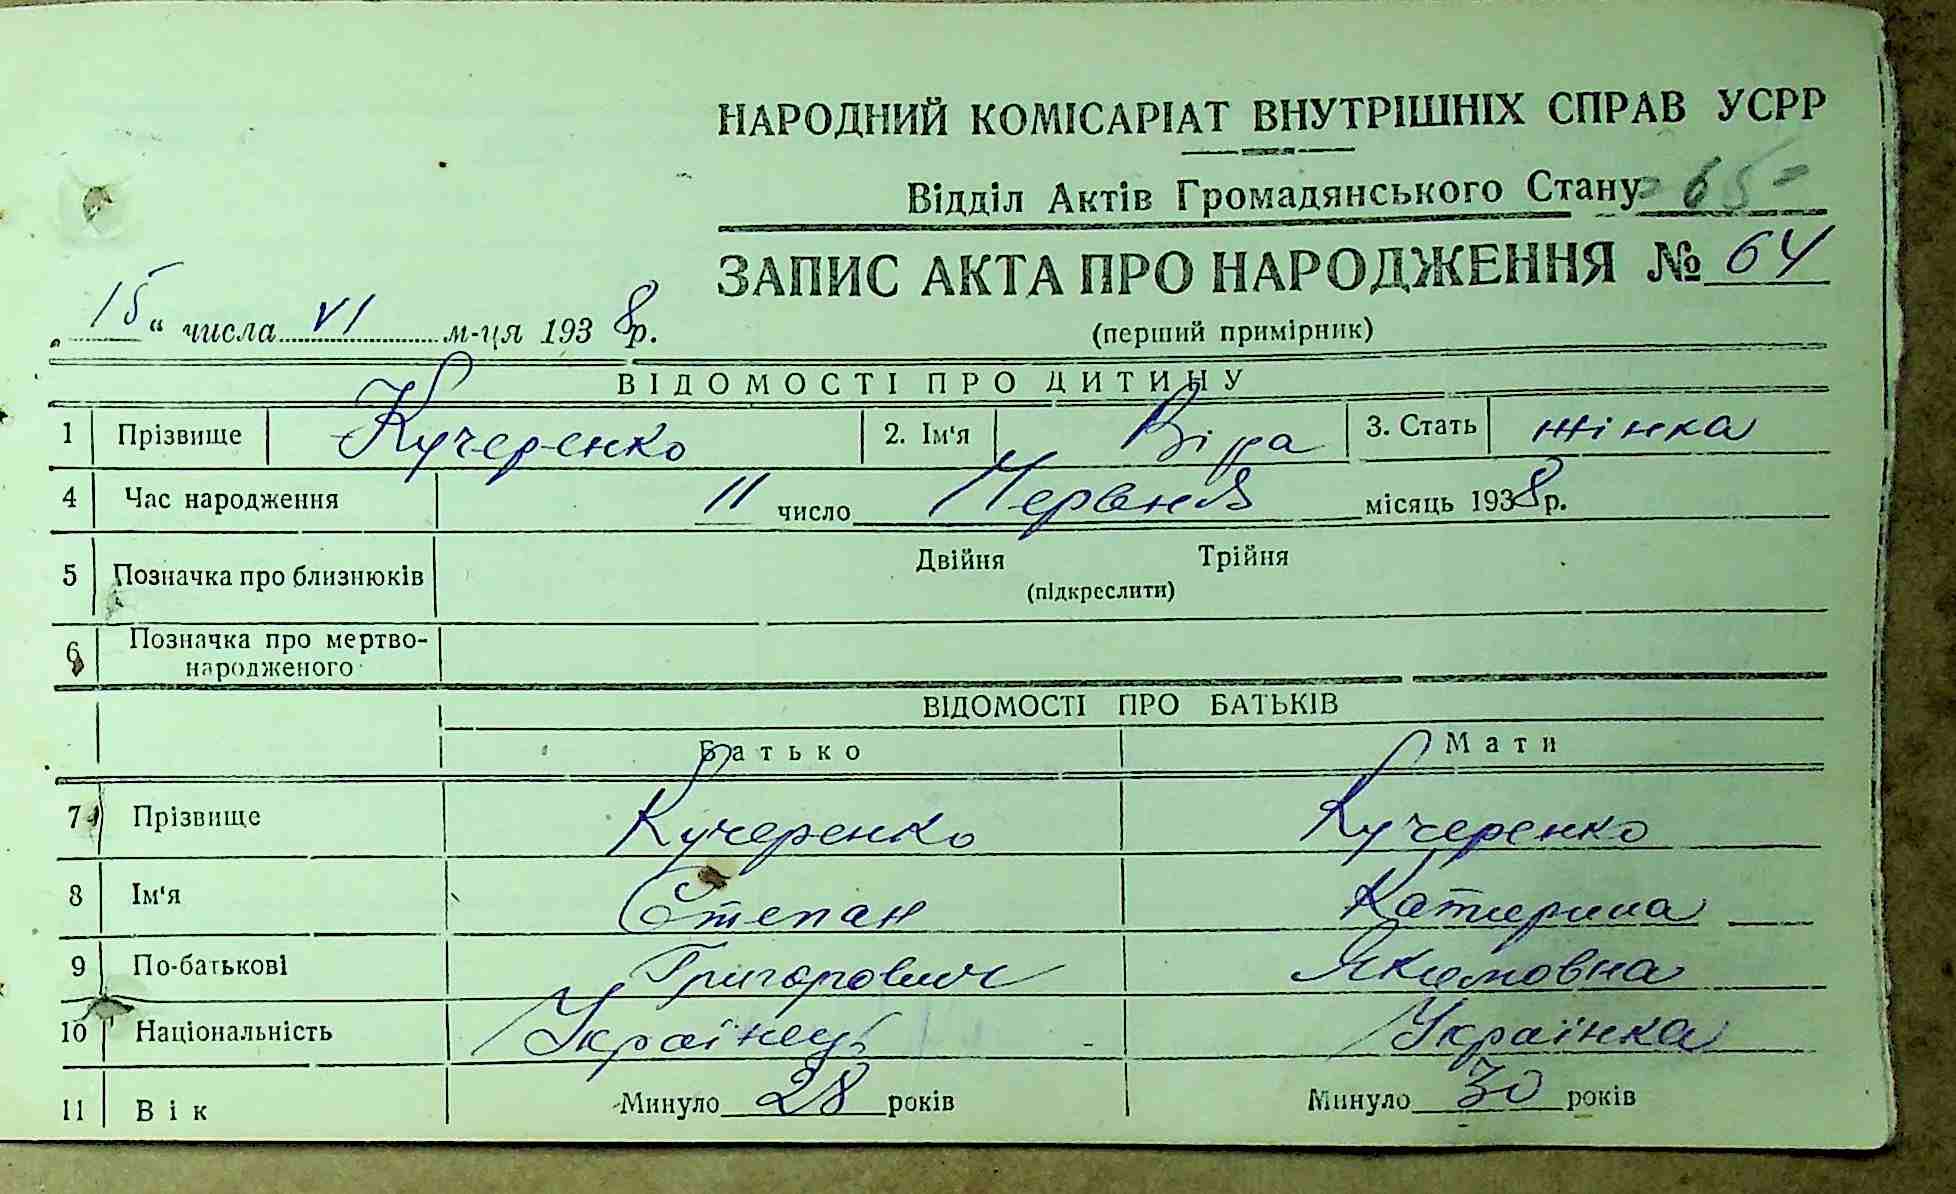 НАРОДНИЙ КОМІСАРІАТ ВНУТРІШНІХ СПРАВ УСРР
Відділ Актів Громадянського Стану 65
ЗАПИС АКТА ПРО НАРОДЖЕННЯ № 64
„15“ числа VI м-ця 1938р.
(перший примірник)
ВІДОМОСТІ ПРО ДИТИНУ
1 Прізвище Кучеренко 2. Ім'я Віра 3. Стать жінка
4 Час народження 11 число Червня місяць 1938р.
5 Позначка про близнюків Двійня Трійня
(підкреслити)
6 Позначка про мертво-
народженого
ВІДОМОСТІ ПРО БАТЬКІВ
Батько Мати
7 Прізвище Кучеренко Кучеренко
8 Ім'я Степан Катерина
9 По-батькові Григорович Якимовна
10 Національність Українець Українка
11 Вік Минуло 28 років Минуло 30 років